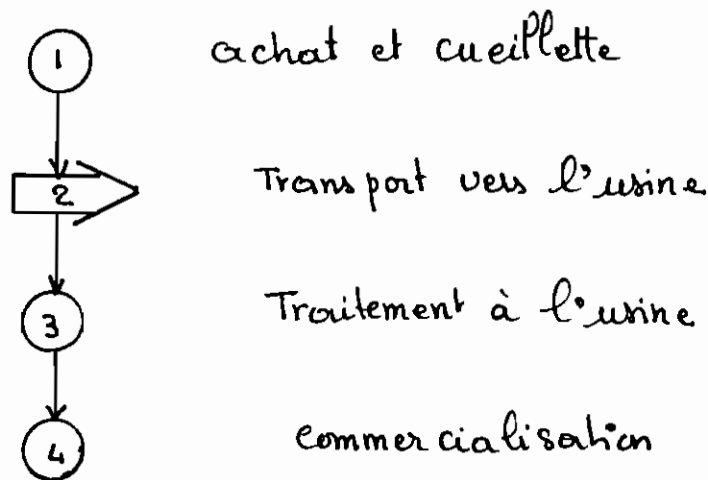 1 achat et cueillette
2 Transport vers l'usine
3 Traitement à l'usine
4 commercialisation